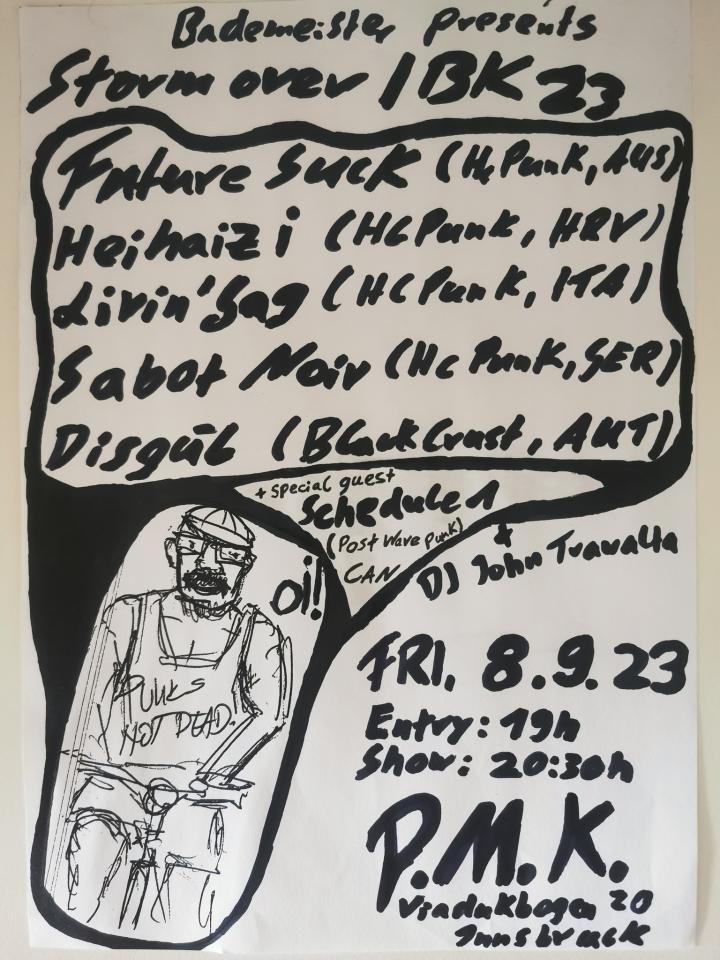 Bademeister presents
Storm over IBK 23
Future Suck (Hc Punk, AUS)
Heihaizi (HC Punk, HRV)
Livin' Gag (HC Punk, ITA)
Sabot Noir (Hc Punk, GER)
Disgûl (Black Crust, AUT)
+ special guest
Schedule 1
(Post Wave punk)
CAN
+
DJ John Travalta
oi!
PUNKS
NOT DEAD.
FRI, 8.9.23
Entry: 19h
Show: 20:30h
P.M.K.
Viaduktbogen 20
Innsbruck